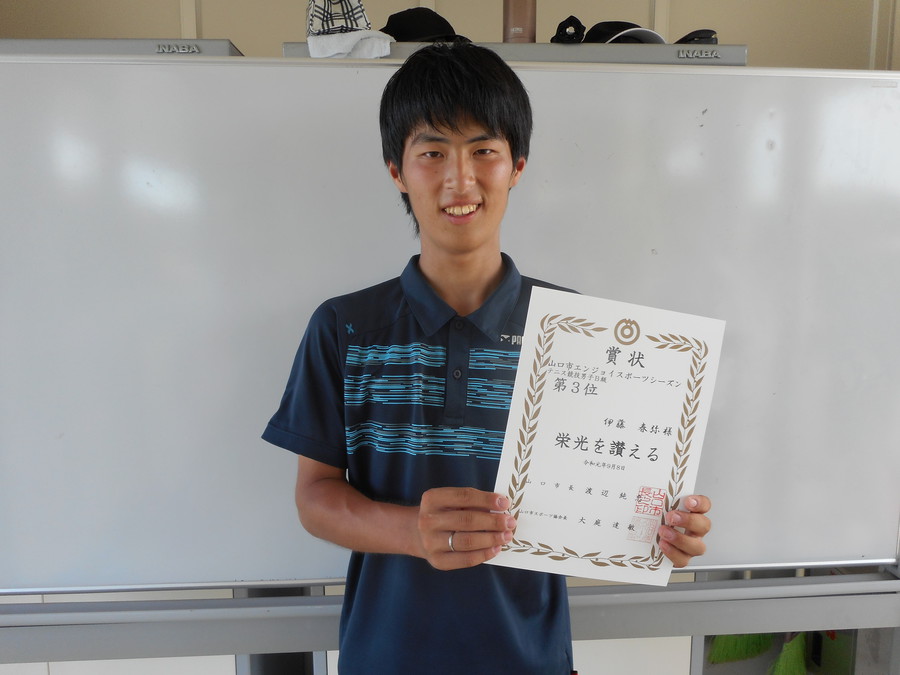 INABA
INABA
賞状
山口市エンジョイスポーツシーズン
テニス競技男子B級
第3位
伊藤 春弥 様
栄光を讃える
令和元年9月8日
山口市長 渡辺 純忠
山口市スポーツ協会長 大庭 達敏